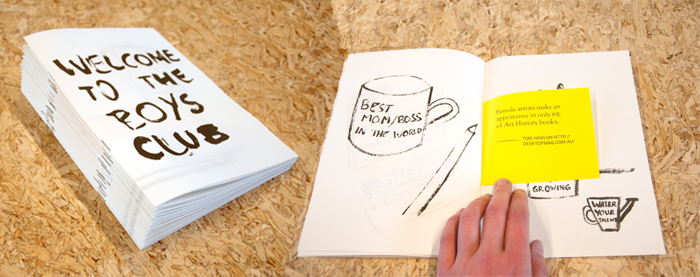 WELCOME
TO THE
BOYS
CLUB
BEST
MOM/BOSS
IN THE WORLD
Female artists make an
appearance in only 6%
of Art History books.
TORI HINN ON HTTP://
DESKTOPMAG.COM.AU/
GROWING
WATER
YOUR
TALENT